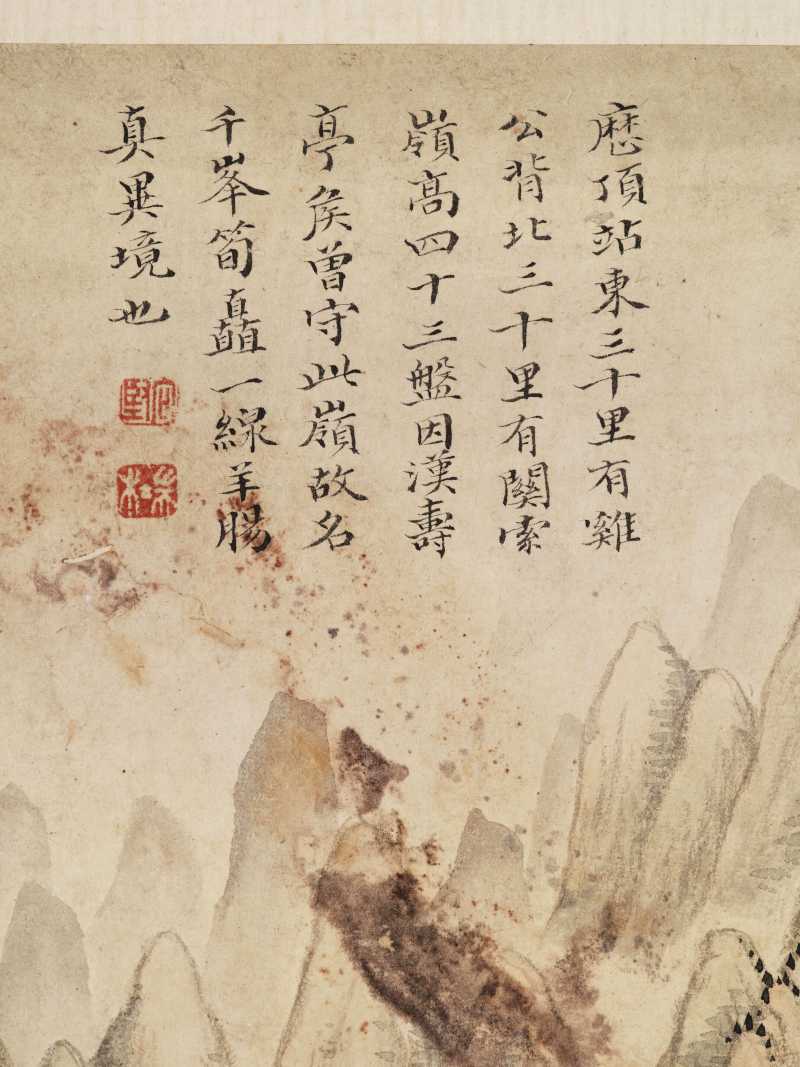 歷頂站東三十里有雞
公背北三十里有關索
嶺高四十三盤因漢壽
亭侯曾守此嶺故名
千峯筍矗一線羊腸
真異境也